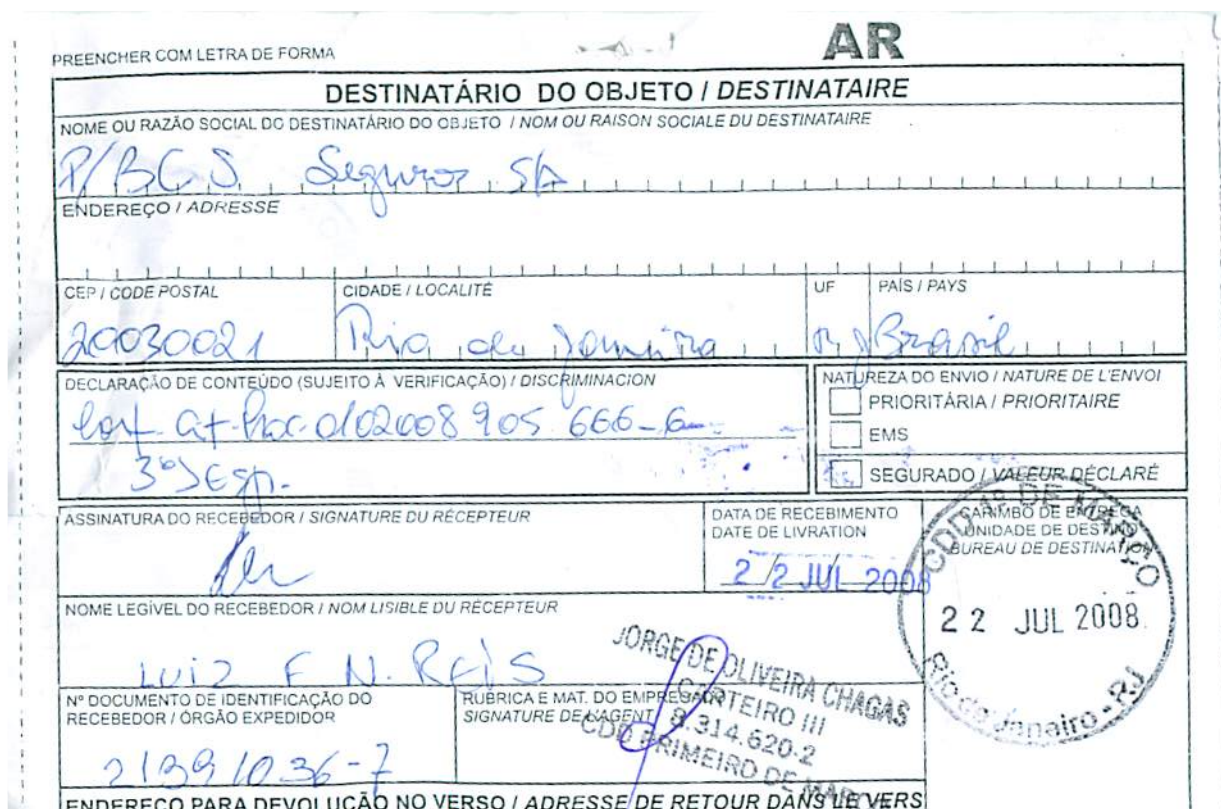 PREENCHER COM LETRA DE FORMA
AR
DESTINATÁRIO DO OBJETO / DESTINATAIRE
NOME OU RAZÃO SOCIAL DO DESTINATÁRIO DO OBJETO / NOM OU RAISON SOCIALE DU DESTINATAIRE
P/BCS Seguros SA
ENDEREÇO / ADRESSE
CEP / CODE POSTAL
CIDADE / LOCALITÉ
UF
PAÍS / PAYS
20030021
Rio de Janeiro
RJ
Brasil
DECLARAÇÃO DE CONTEÚDO (SUJEITO À VERIFICAÇÃO) / DISCRIMINACION
NATUREZA DO ENVIO / NATURE DE L'ENVOI
PRIORITÁRIA / PRIORITAIRE
EMS
SEGURADO / VALEUR DÉCLARÉ
666-6
3º JEsp.
ASSINATURA DO RECEBEDOR / SIGNATURE DU RÉCEPTEUR
DATA DE RECEBIMENTO
DATE DE LIVRATION
22 JUL 2008
CARIMBO DE ENTREGA
UNIDADE DE DESTINO
BUREAU DE DESTINATION
CDD 1º DE MARÇO
22 JUL 2008
Rio de Janeiro - RJ
NOME LEGÍVEL DO RECEBEDOR / NOM LISIBLE DU RÉCEPTEUR
LUIZ F N. REIS
JORGE DE OLIVEIRA CHAGAS
CARTEIRO III
8.314.620-2
CDD PRIMEIRO DE MARÇO
Nº DOCUMENTO DE IDENTIFICAÇÃO DO
RECEBEDOR / ÓRGÃO EXPEDIDOR
RUBRICA E MAT. DO EMPREGADO
SIGNATURE DE L'AGENT
21391036-7
ENDEREÇO PARA DEVOLUÇÃO NO VERSO / ADRESSE DE RETOUR DANS LE VERS